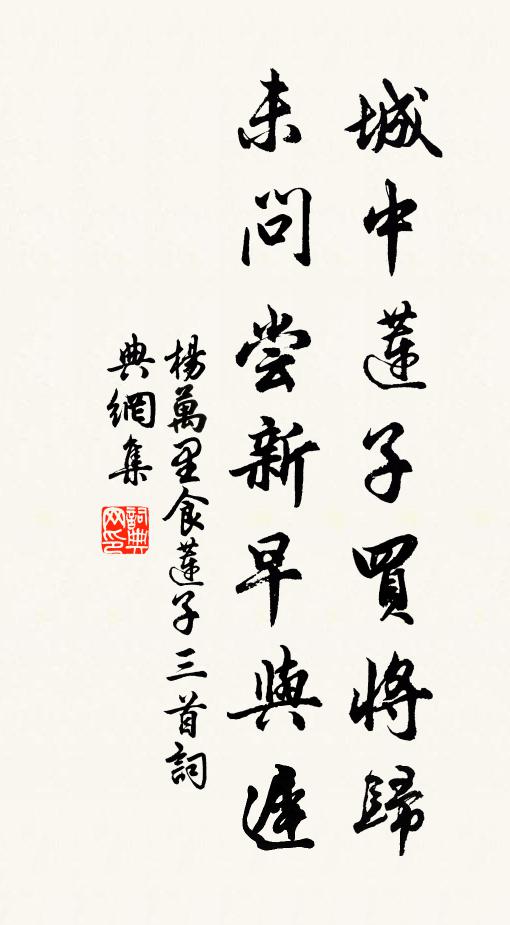 城中蓮子買將歸
未問嘗新早與遲
楊萬里食蓮子三首詞
典網集
詞典
网印